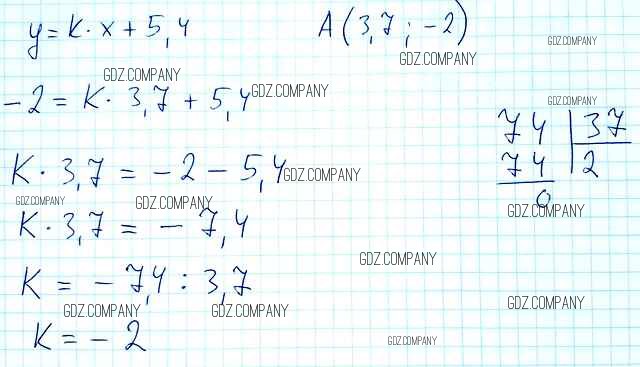 y = k · x + 5,4
A (3,7 ; -2)
GDZ.COMPANY
GDZ.COMPANY
GDZ.COMPANY
-2 = k · 3,7 + 5,4
GDZ.COMPANY
GDZ.COMPANY
74 | 37
74 | 2
0
k · 3,7 = -2 - 5,4
GDZ.COMPANY
GDZ.COMPANY
GDZ.COMPANY
GDZ.COMPANY
k · 3,7 = -7,4
GDZ.COMPANY
k = -7,4 : 3,7
GDZ.COMPANY
GDZ.COMPANY
GDZ.COMPANY
k = -2
GDZ.COMPANY